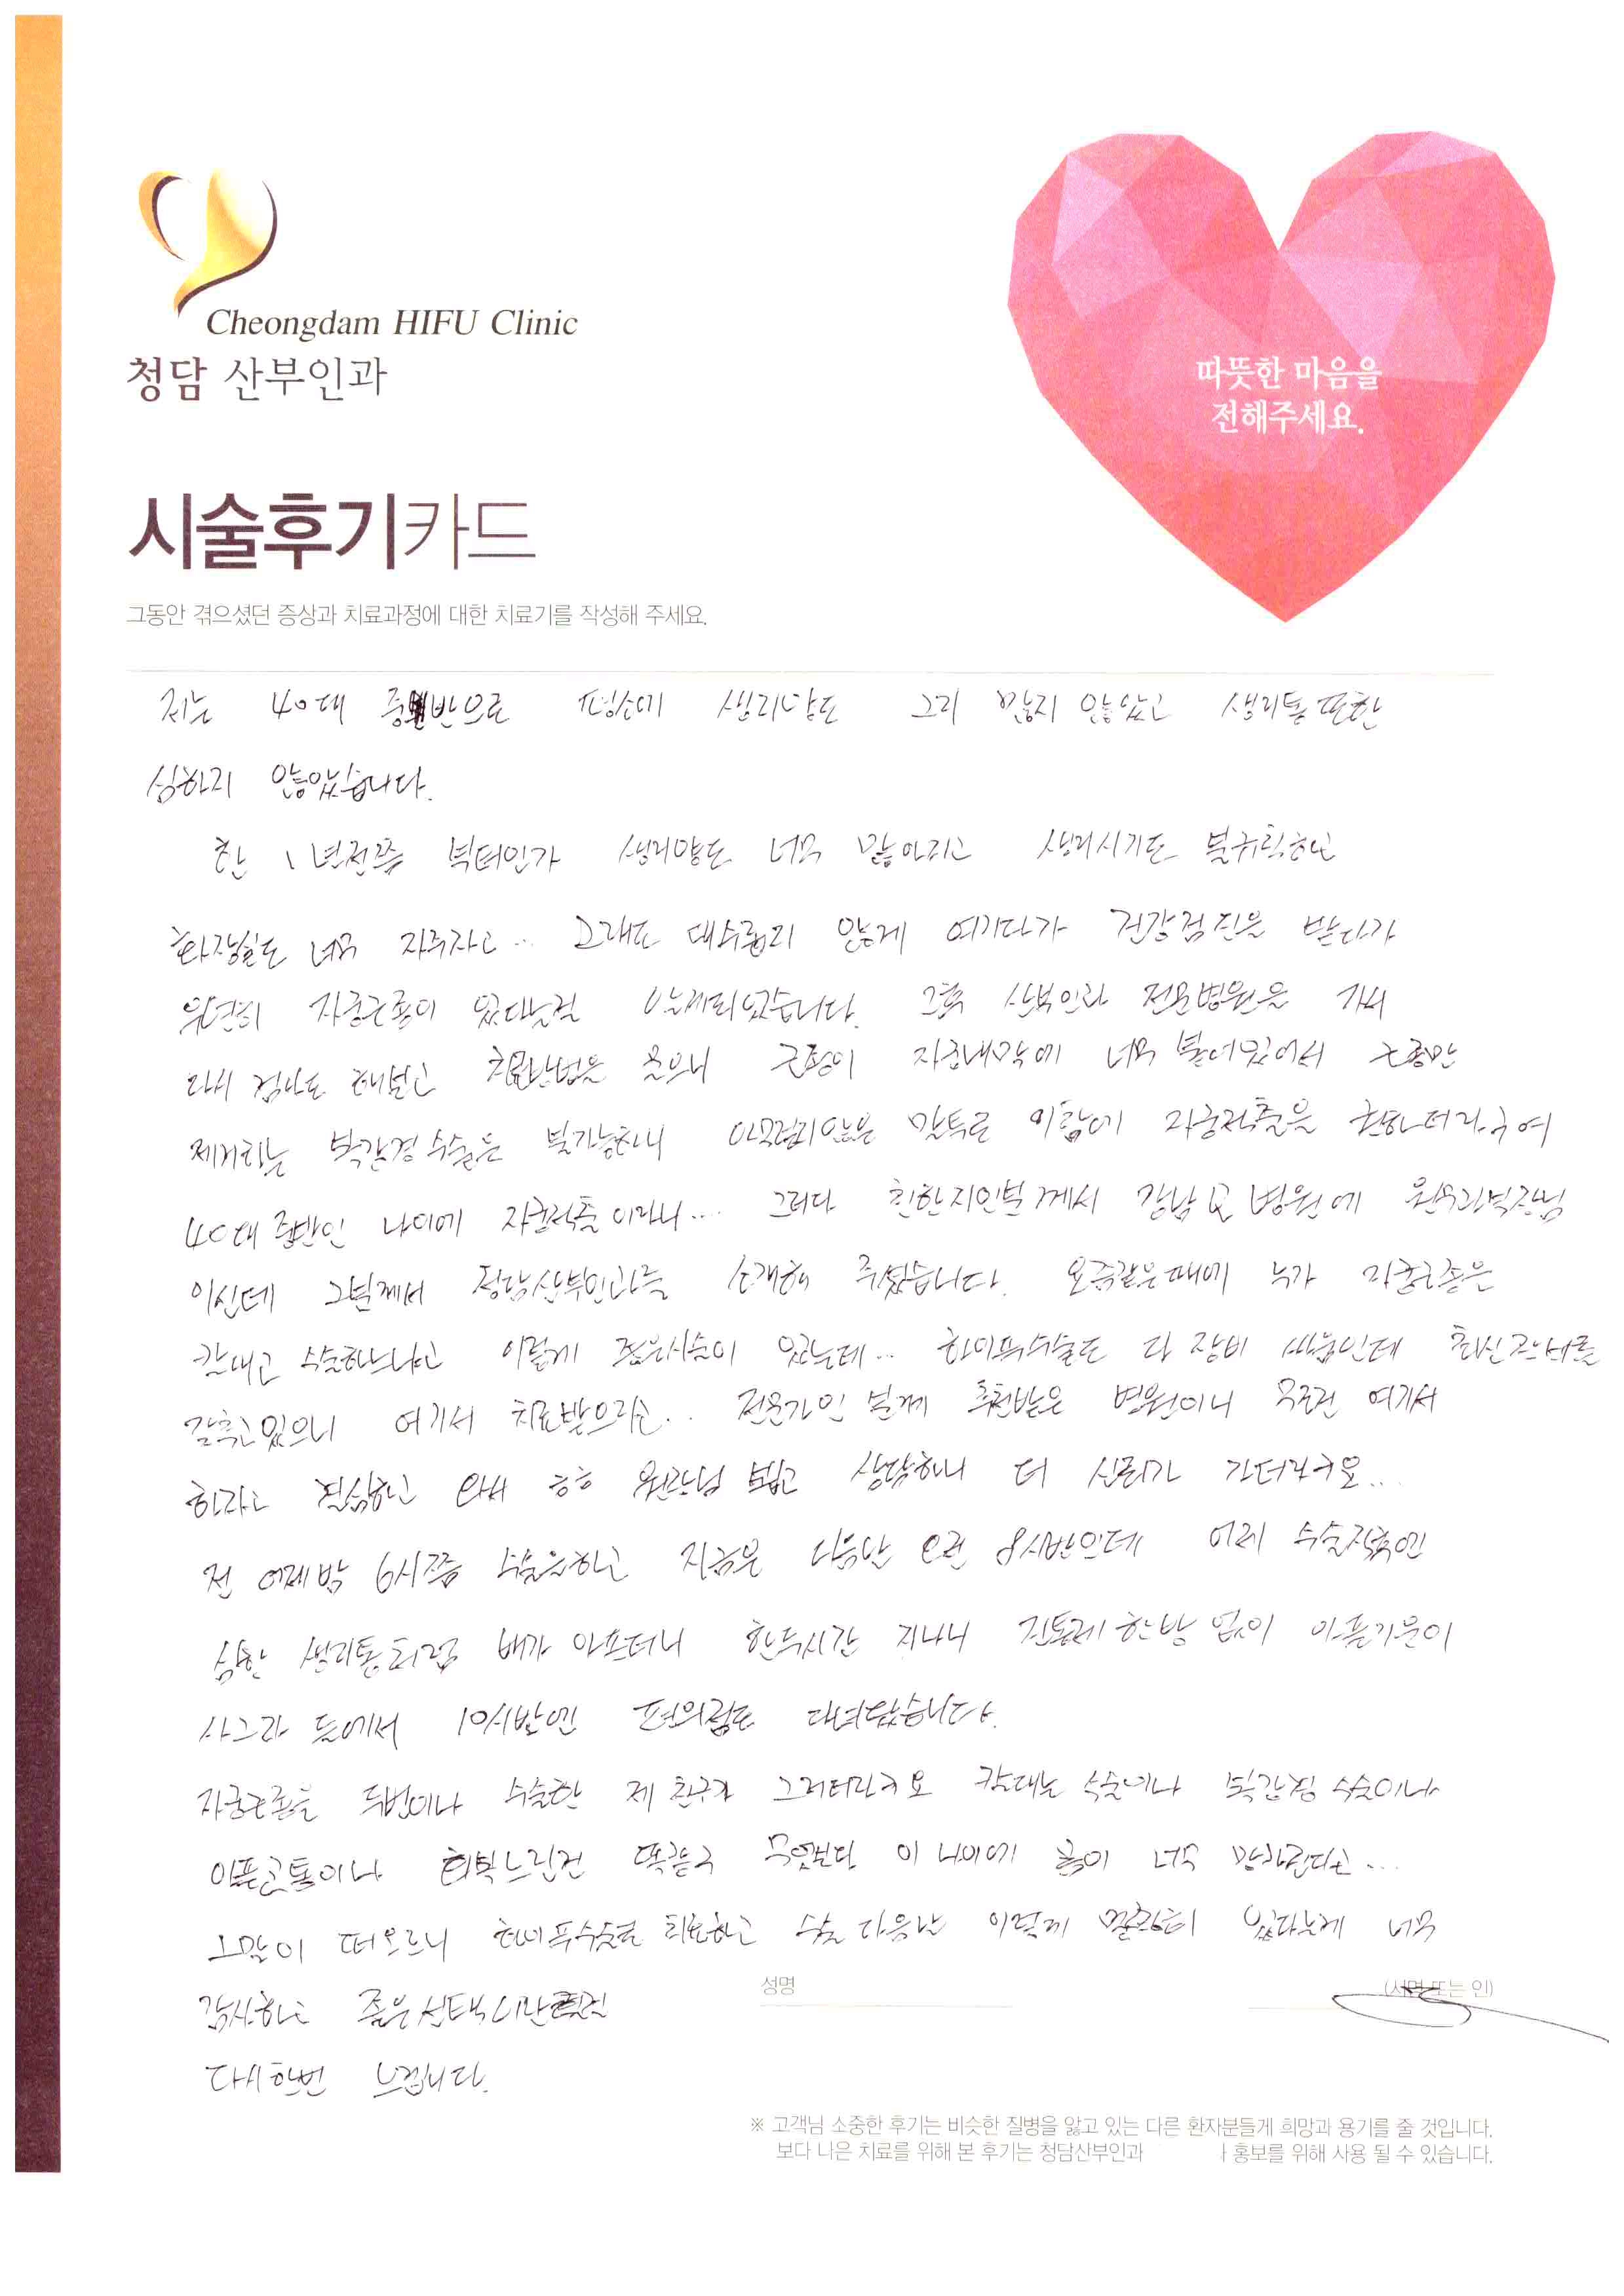 Cheongdam HIFU Clinic
청담 산부인과
따뜻한 마음을
전해주세요.
시술후기카드
그동안 겪으셨던 증상과 치료과정에 대한 치료기를 작성해 주세요.
저는 40대 중반으로 평소에 생리양도 그리 많지 않았고 생리통 또한
심하지 않았습니다.
한 1년전쯤 부터인가 생리양도 너무 많아지고 생리시기도 불규칙하고
화장실도 너무 자주가고... 그래도 대수롭지 않게 여기다가 건강검진을 받다가
우연히 자궁근종이 있다는걸 알게되었습니다. 그후 산부인과 전문병원을 가서
다시 검사도 해보고 치료방법을 물으니 근종이 자궁내막에 너무 붙어있어서 근종만
제거하는 복강경 수술은 불가능하니 아무렇지않은 말투로 자궁적출을 권하더라구여
40대 중반인 나이에 자궁적출이라니... 그러다 친한지인분께서 강남 모 병원에 원무과부장님
이신데 그분께서 청담산부인과를 소개해 주셨습니다. 요즘같은때에 누가 자궁근종은
칼대고 수술하느냐고 이렇게 좋은시술이 있는데... 하이푸수술도 다 장비 싸움인데 최신장비를
갖추고있으니 여기서 치료받으라고.. 전문가인 분께 추천받은 병원이니 무조건 여기서
하자고 결심하고 와서 원장님 뵙고 상담하니 더 신뢰가 가더라구요...
전 어제밤 6시쯤 수술을하고 지금은 다음날 오전 8시반인데 어제 수술직후엔
심한 생리통처럼 배가 아프더니 한두시간 지나니 진통제 한방 없이 아픈기운이
사그라 들어서 10시반엔 편의점도 다녀왔습니다.
자궁근종을 두번이나 수술한 제 친구가 그러더라구요 칼대는 수술이나 복강경 수술이나
아픈고통이나 회복느린건 똑같구 무엇보다 이 나이에 몸이 너무 망가진다구...
그말이 떠오르니 하이푸수술로 치료하고 수술 다음날 이렇게 멀쩡히 있다는게 너무
감사하고 좋은선택이란걸
다시한번 느낍니다.
성명
(서명 또는 인)
※ 고객님 소중한 후기는 비슷한 질병을 앓고 있는 다른 환자분들게 희망과 용기를 줄 것입니다.
보다 나은 치료를 위해 본 후기는 청담산부인과 홍보를 위해 사용 될 수 있습니다.